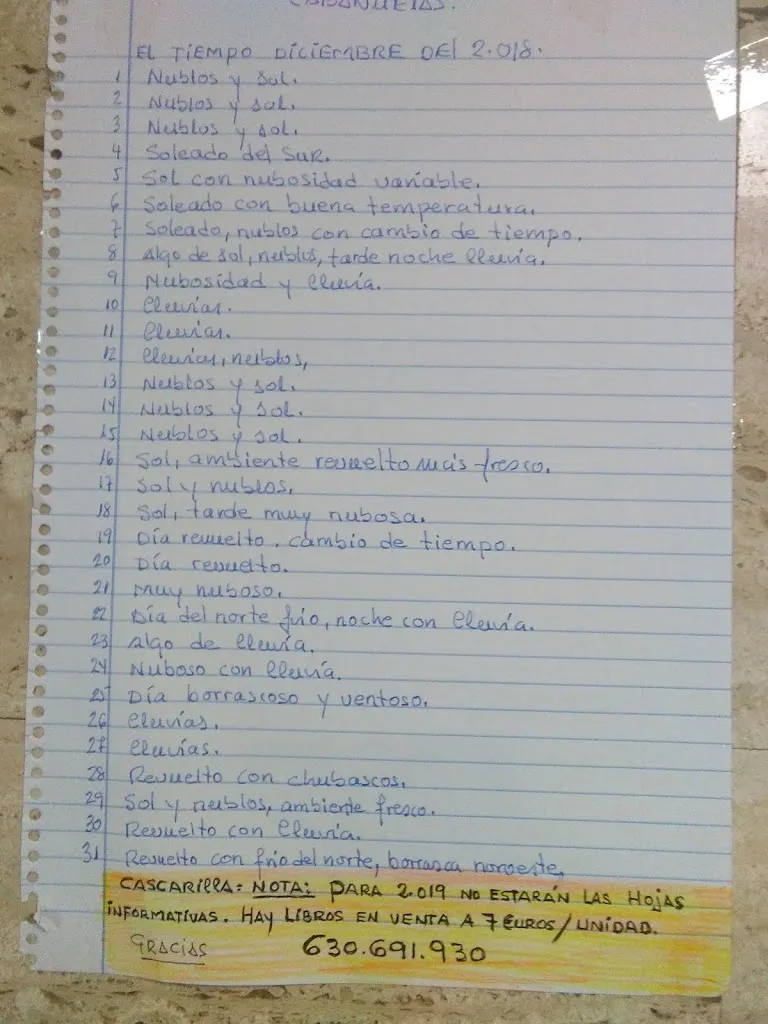 CABAÑUELAS.
EL TIEMPO DICIEMBRE DEL 2.018.
1 Nublos y sol.
2 Nublos y sol.
3 Nublos y sol.
4 Soleado del Sur.
5 Sol con nubosidad variable.
6 Soleado con buena temperatura.
7 Soleado, nublos con cambio de tiempo.
8 Algo de sol, nublos, tarde noche lluvia.
9 Nubosidad y lluvia.
10 Lluvias.
11 Lluvias.
12 Lluvias, nublos,
13 Nublos y sol.
14 Nublos y sol.
15 Nublos y sol.
16 Sol, ambiente revuelto más fresco.
17 Sol y nublos.
18 Sol, tarde muy nubosa.
19 Día revuelto. cambio de tiempo.
20 Día revuelto.
21 Muy nuboso.
22 Día del norte frio, noche con lluvia.
23 Algo de lluvia.
24 Nuboso con lluvia.
25 Día borrascoso y ventoso.
26 Lluvias.
27 Lluvias.
28 Revuelto con chubascos.
29 Sol y nublos, ambiente fresco.
30 Revuelto con lluvia.
31 Revuelto con frio del norte, borrasca noroeste.
CASCARILLA: NOTA: PARA 2.019 NO ESTARÁN LAS HOJAS
INFORMATIVAS. HAY LIBROS EN VENTA A 7 EUROS/UNIDAD.
GRACIAS 630.691.930